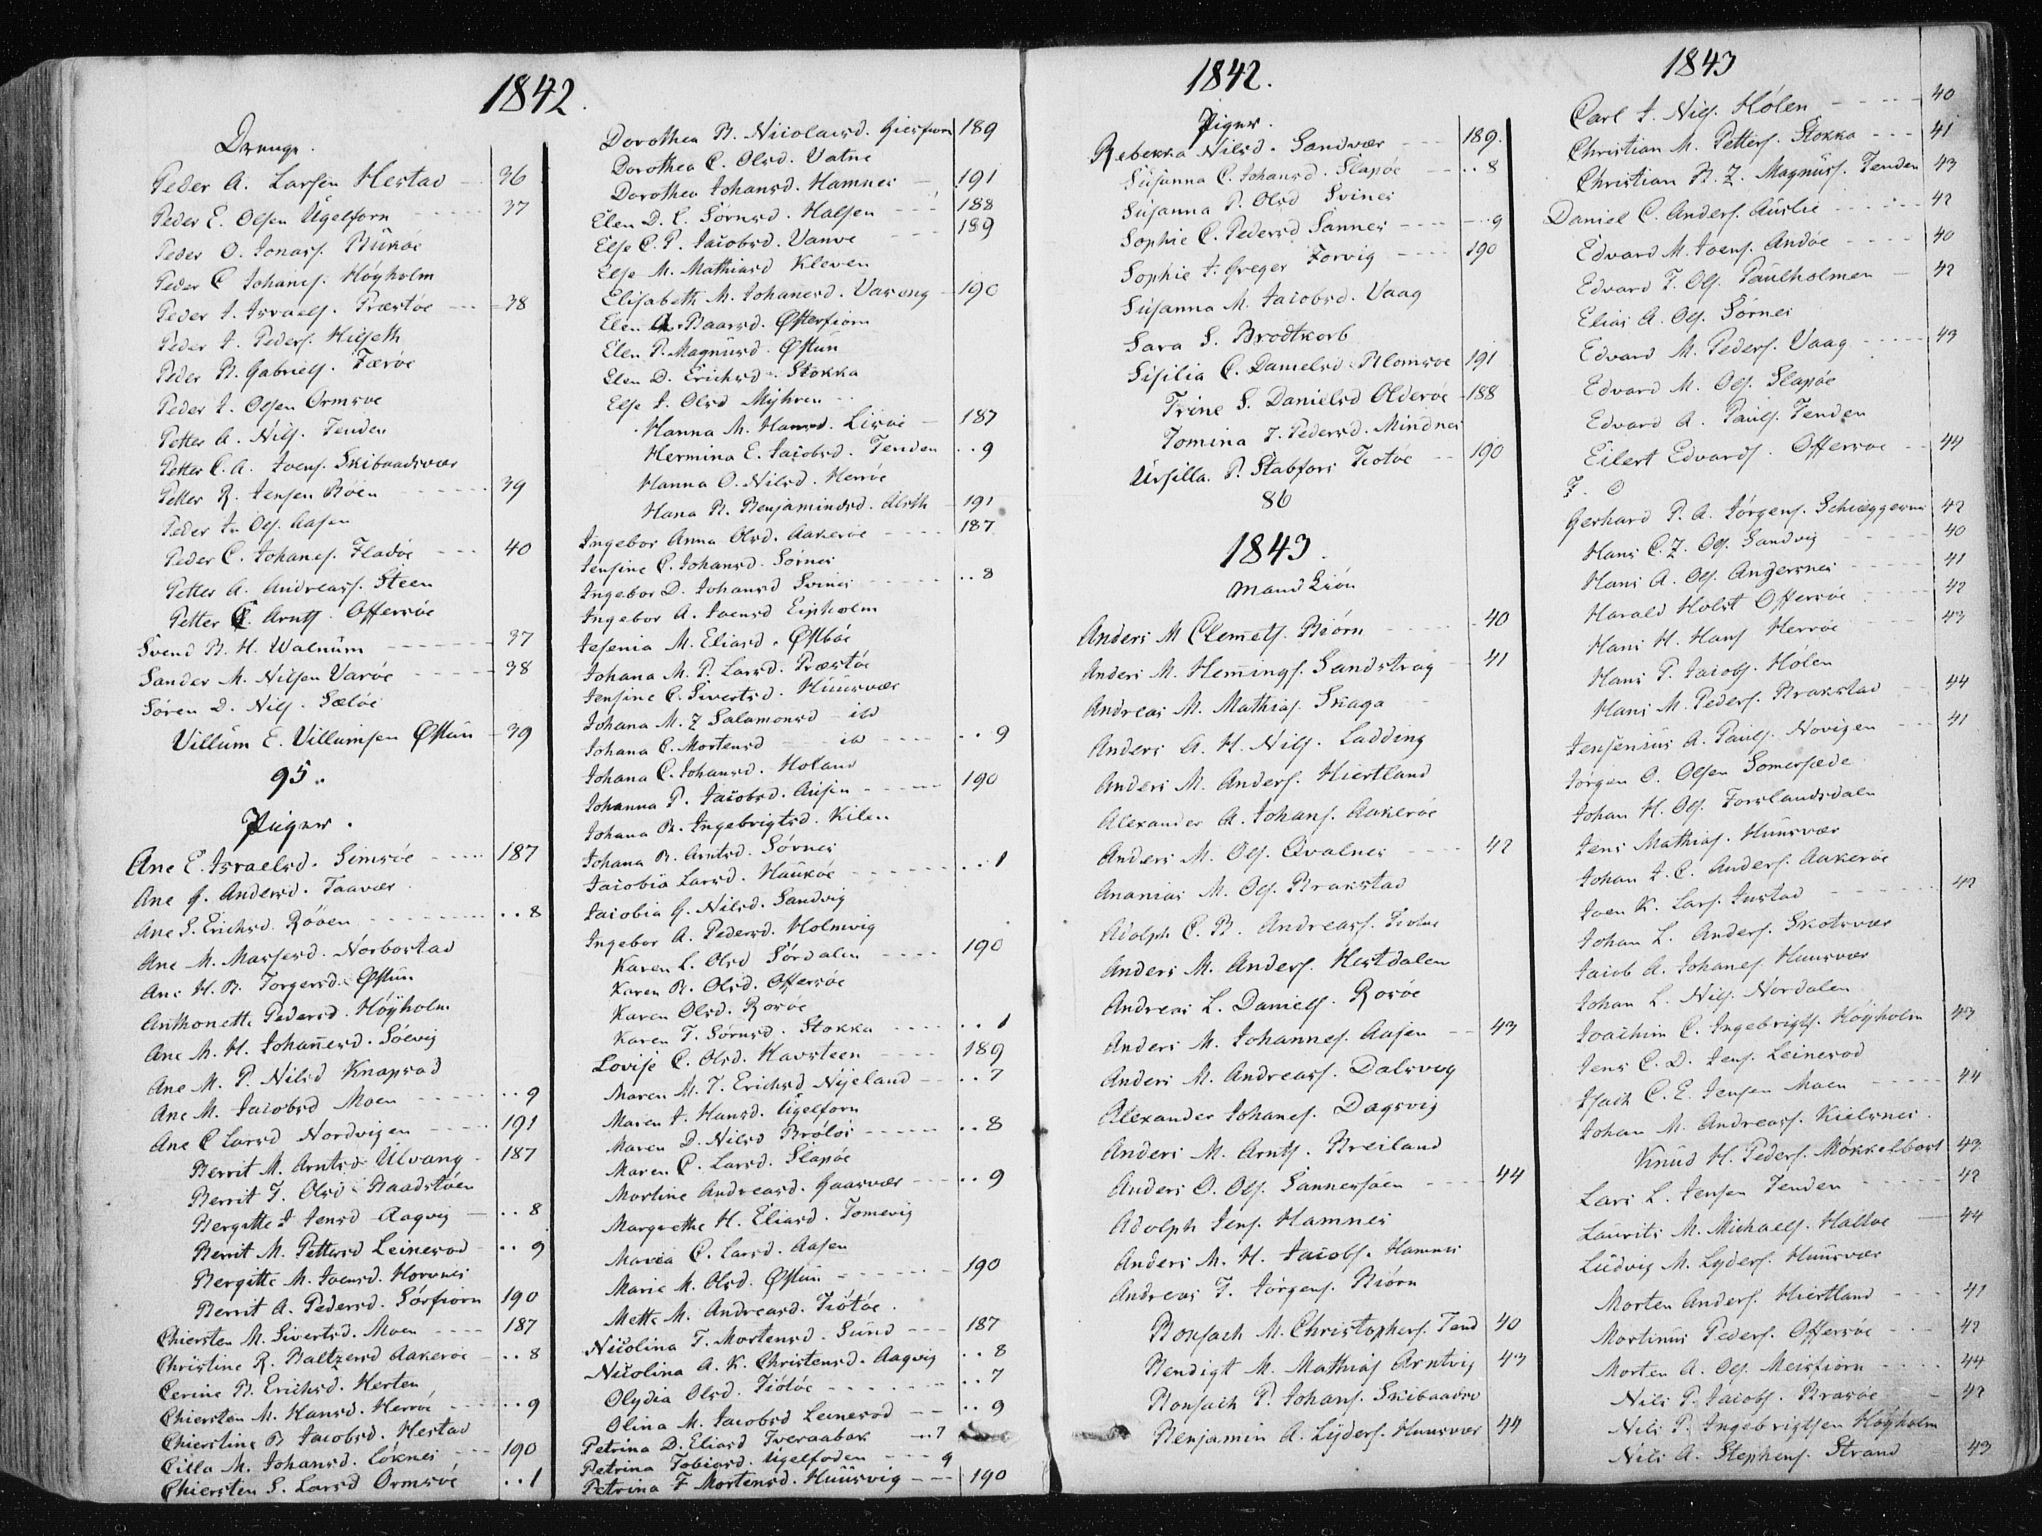 1842.
Drenge.
Peder A. Larsen Hestad 36
Peder E. Olsen Ugelforn 37
Peder O. Jonass. Bukøe
Peder C Johans. Høyholm
Peder J. Israels. Præstøe 38
Peder J. Peders. Hilseth
Peder B. Gabriels. Færøe
Peder J. Olsen Ormsøe
Petter A. Nils. Tenden
Petter C. A. Joens. Skibaadsvær
Petter R. Jensen Røen 39
Peder Jn Ols. Aasen
Peder C. Johanes. Fladøe 40
Petter A. Andreass. Steen
Petter C. Arnts. Offersøe
Svend B. H. Walnum 37
Sander M. Nilsen Varøe 38
Søren D. Nils. Sæløe
Villum E. Villumsen Østun 39
95.
Piger.
Ane E. Israelsd. Simsøe 187
Ane G. Andersd. Taavær
Ane S. Erichsd. Røoen ..8
Ane M. Massesd. Norbostad
Ane H. B. Torgersd. Østun
Anthonette Pedersd. Høyholm
Ane M. H. Johannesd. Søevig
Ane M. P. Nilsd Knapsad
Ane M. Jacobsd Moen ..9
Ane C Larsd Nordvigen 191
Berrit M. Arntsd Ulvang 187
Berrit J. Olsd Baadstøen
Bergitte J Jensd Aagvig ..8
Berrit M. Pettersd Leinesod ..9
Bergitte M. Joensd. Horvnes
Berrit A. Pedersd. Sørfiorn 190
Chiersten M. Sivertsd. Moen 187
Christine R. Baltzersd Aakerøe ..8
Cerine B. Erichsd. Herten
Chiersten M. Hansd. Herrøe ..9
Chierstine B Jacobsd. Hestad
Cilla M. Johansd. Løknes 190
Chiersten S. Larsd Ormsøe ..1
Dorothea B. Nicolaisd. Giesfiorn 189
Dorothea C. Olsd. Vatne
Dorothea Johansd. Hamnes 191
Elen D. C. Sørnsd. Halsen 188
Else C. P. Jacobsd. Vanve 189
Else M. Mathiasd Kleven
Elisabeth M. Johanesd. Vaseng 190
Elen A. Baarsd. Østerfiorn
Elen P. Magnusd. Østun
Elen D. Erichsd. Stokka
Else J. Olsd Myhren
Hanna M. Hansd. Lisøe 187
Hermina E. Jacobsd. Tenden ..9
Hanna O. Nilsd. Herrøe
Hana B. Benjaminsd. Alsth 191
Ingebor Anna Olsd. Aakerøe 187
Jensine C. Johansd. Sørnes
Ingebor D. Johansd Svines ..8
Ingebor A. Joensd Eisholm
Jesenia M. Eliasd. Østbøe
Johana M. P. Larsd. Præstøe
Jensine C. Sivertsd. Huusvær
Johana M. Z Salamonsd id
Johana C. Mortensd id ..9
Johana C. Johansd. Holand
Johanna P. Jacobsd. Ausen 190
Johana B. Ingebrigtsd. Kilen
Johana B. Arntsd. Sørnes
Jacobia Larsd. Haukøe ..1
Jacobia G. Nilsd. Sandvig
Ingebor A. Pedersd. Holmvig
Karen L. Olsd Sørdalen 190
Karen B. Olsd. Offersøe
Karen Olsd. Rosøe
Karen T. Sørnsd. Stokka ..1
Lovise C. Olsd. Havsteen 189
Maren M. T. Erichsd Nyeland ..7
Maren J. Hansd. Ugelforn
Maren D. Nilsd Broløs ..8
Maren C. Larsd. Slapøe
Martine Andreasd. Gaasvær ..9
Margrethe H. Eliasd. Tomevig
Maria C. Larsd. Aasen
Marie M. Olsd. Østun 190
Mette M. Andreasd. Tiøtøe
Nicolina T. Mortensd. Sund 187
Nicolina A. K. Christensd. Aagvig ..8
Olydia Olsd. Tiøtøe ..7
Olina M. Jacobsd Leinesod ..9
Petrina D. Eliasd Tveraabak ..7
Petrina Tobiasd. Ugelfoden 9
Petrina F Mortensd. Huusvig 190
1842.
Piger.
Rebekka Nilsd. Sandvær 189.
Susanna C. Johansd. Slapøe ..8
Susanna P. Olsd Svines
Sophie C. Pedersd Sannes ..9
Sophie J. Greger Forvig 190
Susanna M. Jacobsd. Vaag
Sara S. Brodtkorb
Sisilia C. Danielsd Blomsøe 191
Trine S. Danielsd Olderøe 188
Tomina J. Pedersd. Mindnes
Ursilla. P. Stabfors Tiøtøe 190
86
1843.
Mand Kiøn
Anders M Clemets. Biørn 40
Anders M. Hemings. Sandstrag 41
Andreas M. Mathias. Skaga
Anders A. H. Nils. Ladding
Anders M. Anders. Hiertland
Alexander A. Johans. Aakerøe
Anders M. Ols. Qvalnes 42
Ananias M. Ols. Brakstad
Adolph C. B. Andreass. Tiøtøe
Anders M. Anders. Hestdalen
Andreas L. Daniels. Rosøe
Anders M. Johannes. Aasen 43
Anders M. Andreass. Dalsvog
Alexander Johanes. Dagsvig
Anders M. Arnts. Breiland
Anders O. Ols. Sannersøen 44
Adolph Jens. Hamnes
Anders M. H. Jacobs. Hamnes
Andreas T. Jørgens. Biørn
Bonsach M. Christophers. Tend 40
Bendigt M. Mathias Arntvig 43
Bonsach P. Johans. Skibaadsv
Benjamin A. Lyders. Huusvær 44
1843
Carl J. Nils. Hølen 40
Christian M. Petters. Stokka 41
Christian B. Z. Magnus. Tenden 43
Daniel C. Anders. Auslie 42
Edvard M. Joens. Andøe 40
Edvard T. Ols. Paulholmen 42
Elias A. Ols. Sørnes
Edvard M. Peders. Vaag 43
Edvard M. Ols. Slapøe
Edvard A. Pauls. Tenden
Eilert Edvards. Offersøe 44
F. O
Gerhard P. A. Jørgens. Schieggesnes 42
Hans C. Z. Ols. Sandvig 40
Hans A. Ols. Angersnes 41
Harald Holst Offersøe 42
Hans H. Hans Herrøe 43
Hans P. Jacobs. Hølen
Hans M. Peders. Brakstad 44
Jensenius A. Pauls. Novigen 41
Jørgen O. Olsen Somersæde
Johan H. Ols. Forslandsdalen
Jens Mathias. Huusvær
Johan J. E. Anders. Aakerøe
Joen K. Lars. Justad 42
Johan L. Anders. Skotsvær
Jacob A. Johanes. Huusvær
Johan L. Nils. Nordalen
Joachim C. Ingebrigts. Høyholm 43
Jens C. D. Jens. Leinesod
Isach C. E. Jensen Moen 44
Johan M. Andreass. Kielsnes
Knud H. Peders. Møkkelbost 43
Lars L. Jensen Tenden 42
Laurits M. Michaels. Haltøe 44
Ludvig M. Lyders. Huusvær
Morten Anders. Hiertland 41
Martinus Peders. Offersøe 42
Morten A. Ols. Meisfiorn 44
Nils P. Jacobs. Brasøe 42
Nils P. Ingebrigtsen Høyholm
Nils A. Stephens. Strand 43